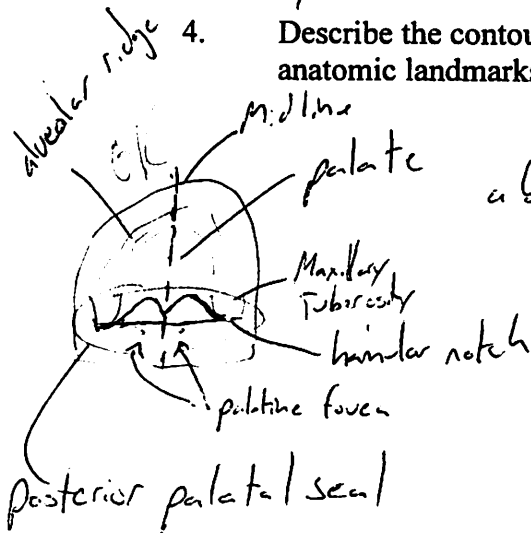 4. Describe the contou
anatomic landmarks
alveolar ridge
Midline
ok
palate
Maxillary
Tuberosity
hamular notch
palatine fovea
posterior palatal seal